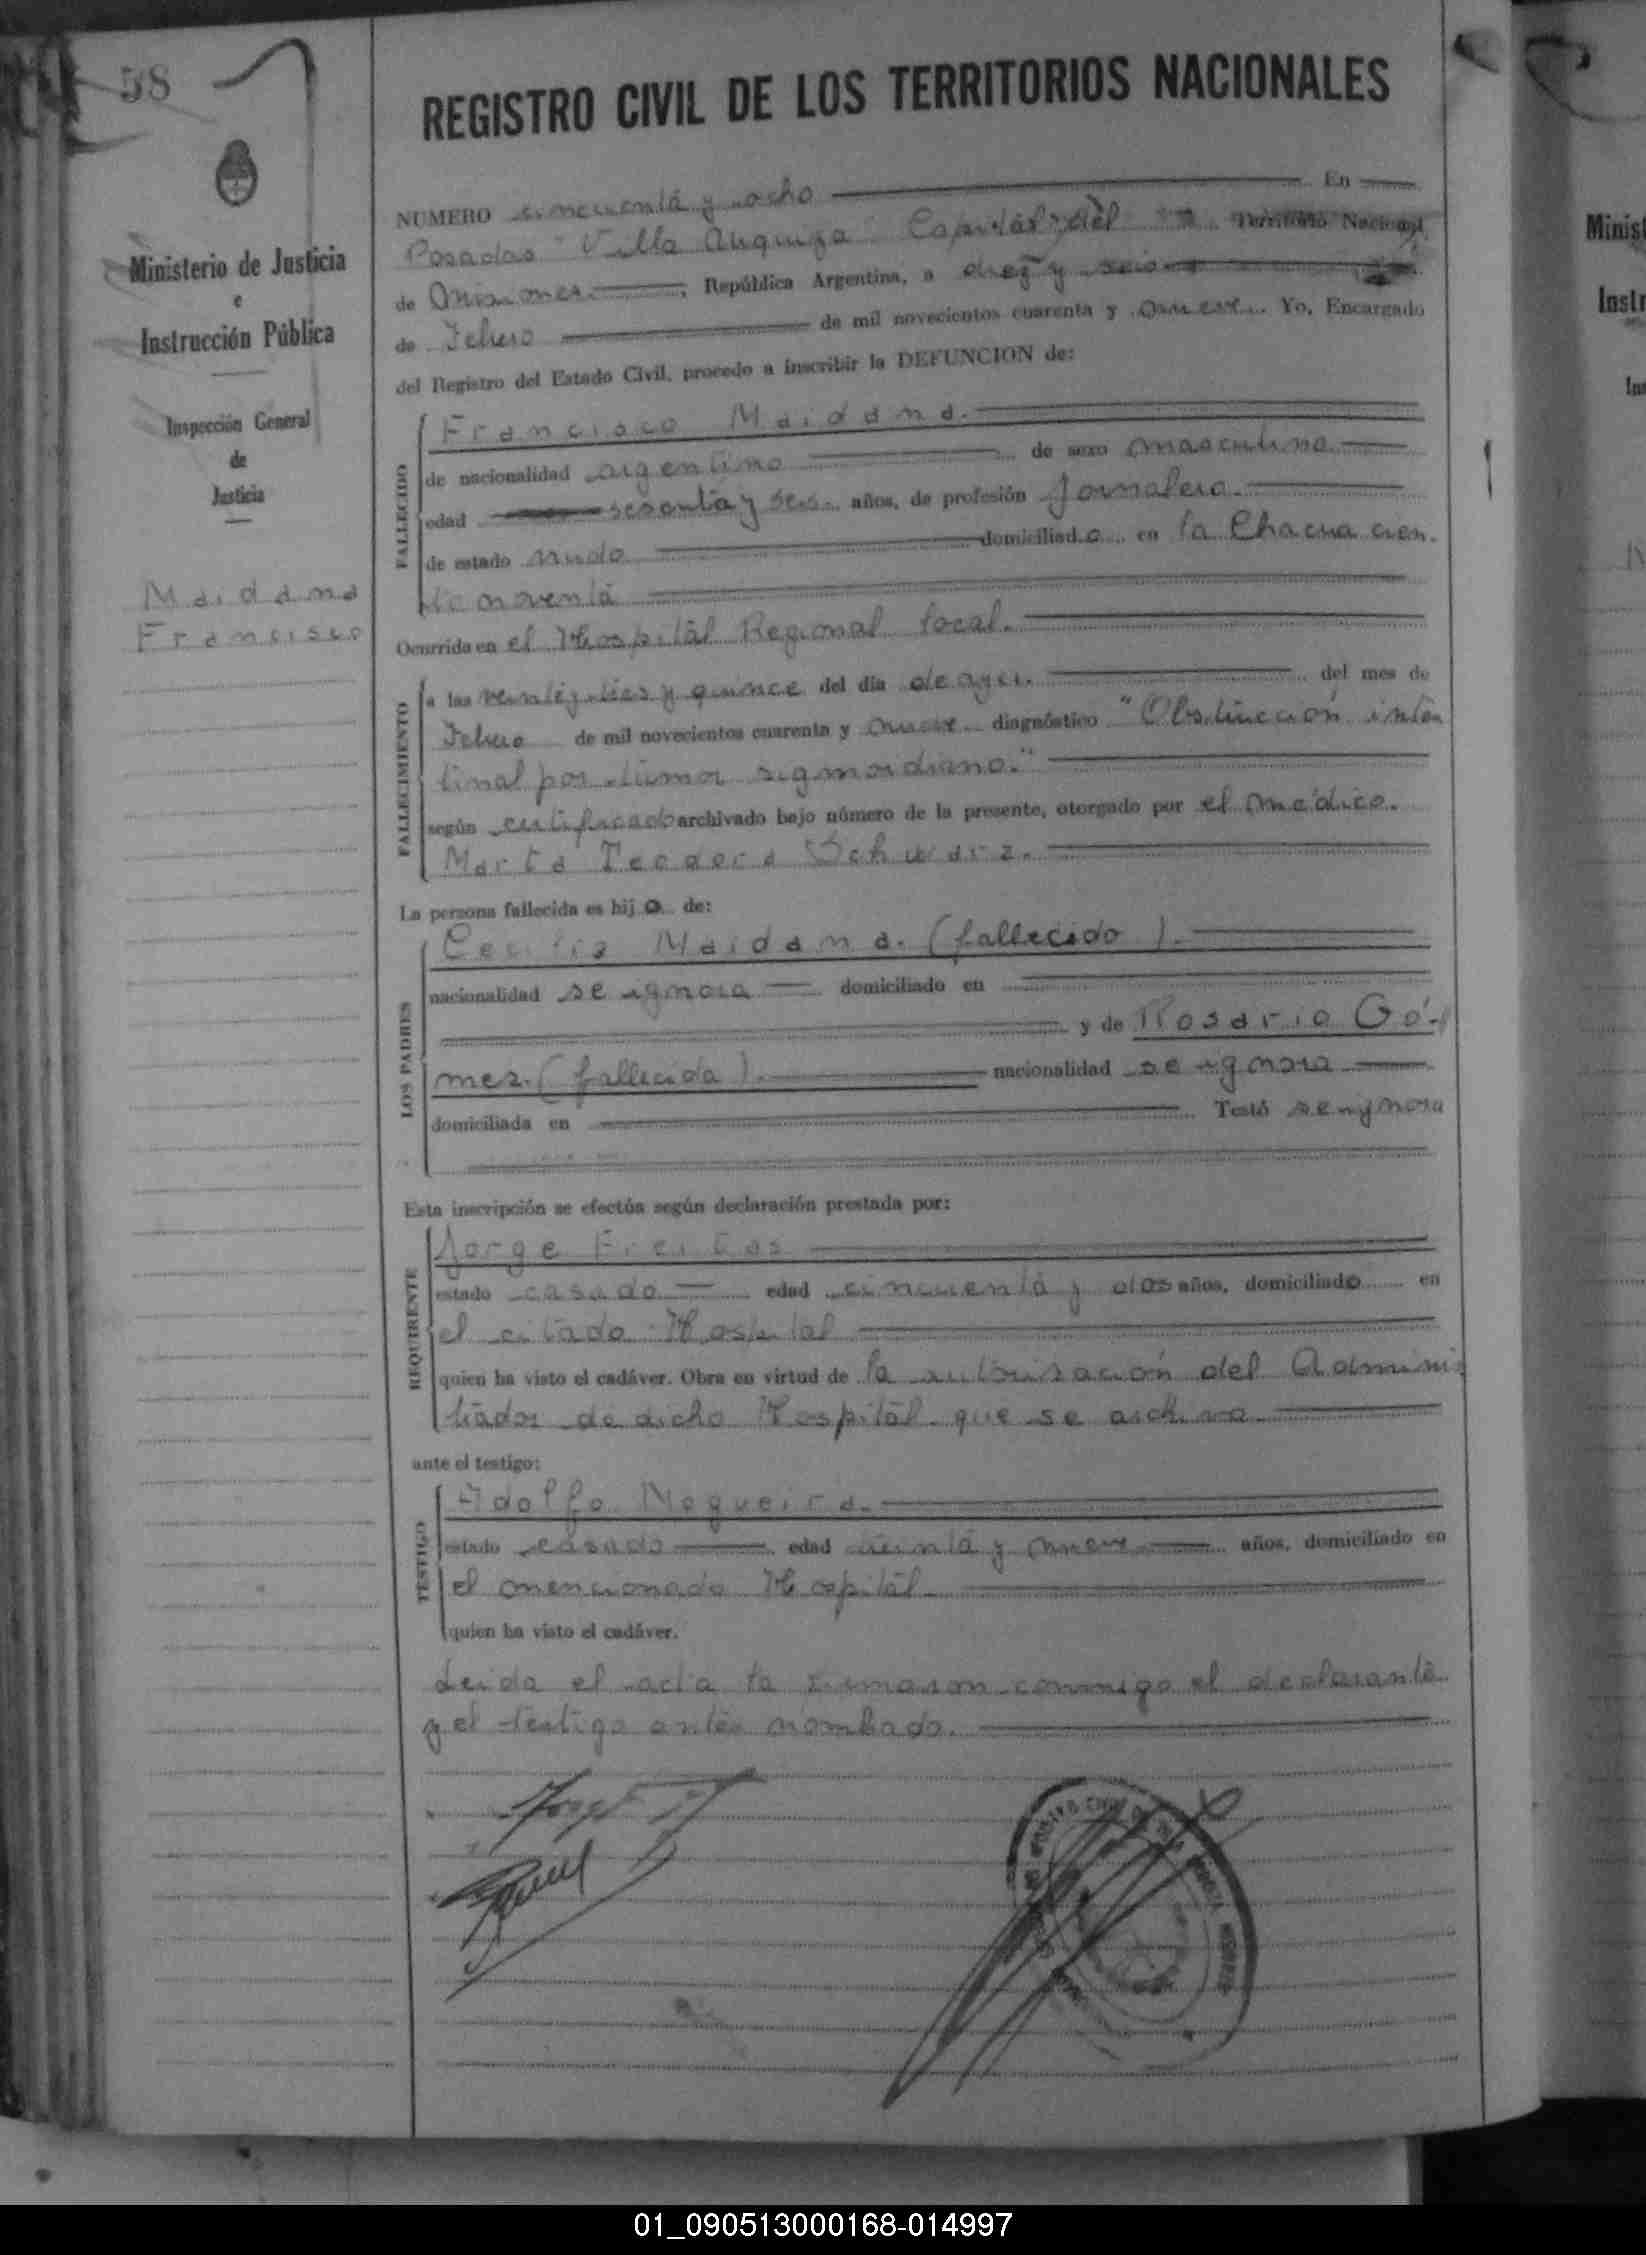 58
Ministerio de Justicia
e
Instrucción Pública
Inspección General
de
Justicia
Maidana
Francisco
REGISTRO CIVIL DE LOS TERRITORIOS NACIONALES
NUMERO cincuenta y ocho En
Posadas "Villa Urquiza" Capital del Territorio Nacional
de Misiones, República Argentina, a diez y seis
de Febrero de mil novecientos cuarenta y nueve Yo, Encargado
del Registro del Estado Civil, procedo a inscribir la DEFUNCION de:
FALLECIDO
Francisco Maidana.
de nacionalidad argentino de sexo masculino
edad sesenta y seis años, de profesión jornalero.
de estado viudo domiciliado en la Chacra cien-
to noventa
Ocurrida en el Hospital Regional local.
FALLECIMIENTO
a las veintiy tres y quince del día de ayer. del mes de
Febrero de mil novecientos cuarenta y nueve diagnóstico "Obstrucción intes
tinal por tumor sigmoidiano."
según certificado archivado bajo número de la presente, otorgado por el médico.
Marta Teodora Schwarz.
La persona fallecida es hijo de:
LOS PADRES
Cecilio Maidana. (fallecido).
nacionalidad se ignora domiciliado en
y de Rosario Gó-
mez. (fallecida). nacionalidad se ignora
domiciliada en Testó se ignora
Esta inscripción se efectúa según declaración prestada por:
REQUIRENTE
Jorge Freitas
estado casado edad cincuenta y dos años, domiciliado en
el citado Hospital
quien ha visto el cadáver. Obra en virtud de la autorisación del Adminis
trador de dicho Hospital que se archiva
ante el testigo:
TESTIGO
Adolfo Nogueira.
estado casado edad treinta y nueve años, domiciliado en
el mencionado Hospital
quien ha visto el cadáver.
Leida el acta la firmaron conmigo el declarante
y el testigo antes nombrado.
01_090513000168-014997